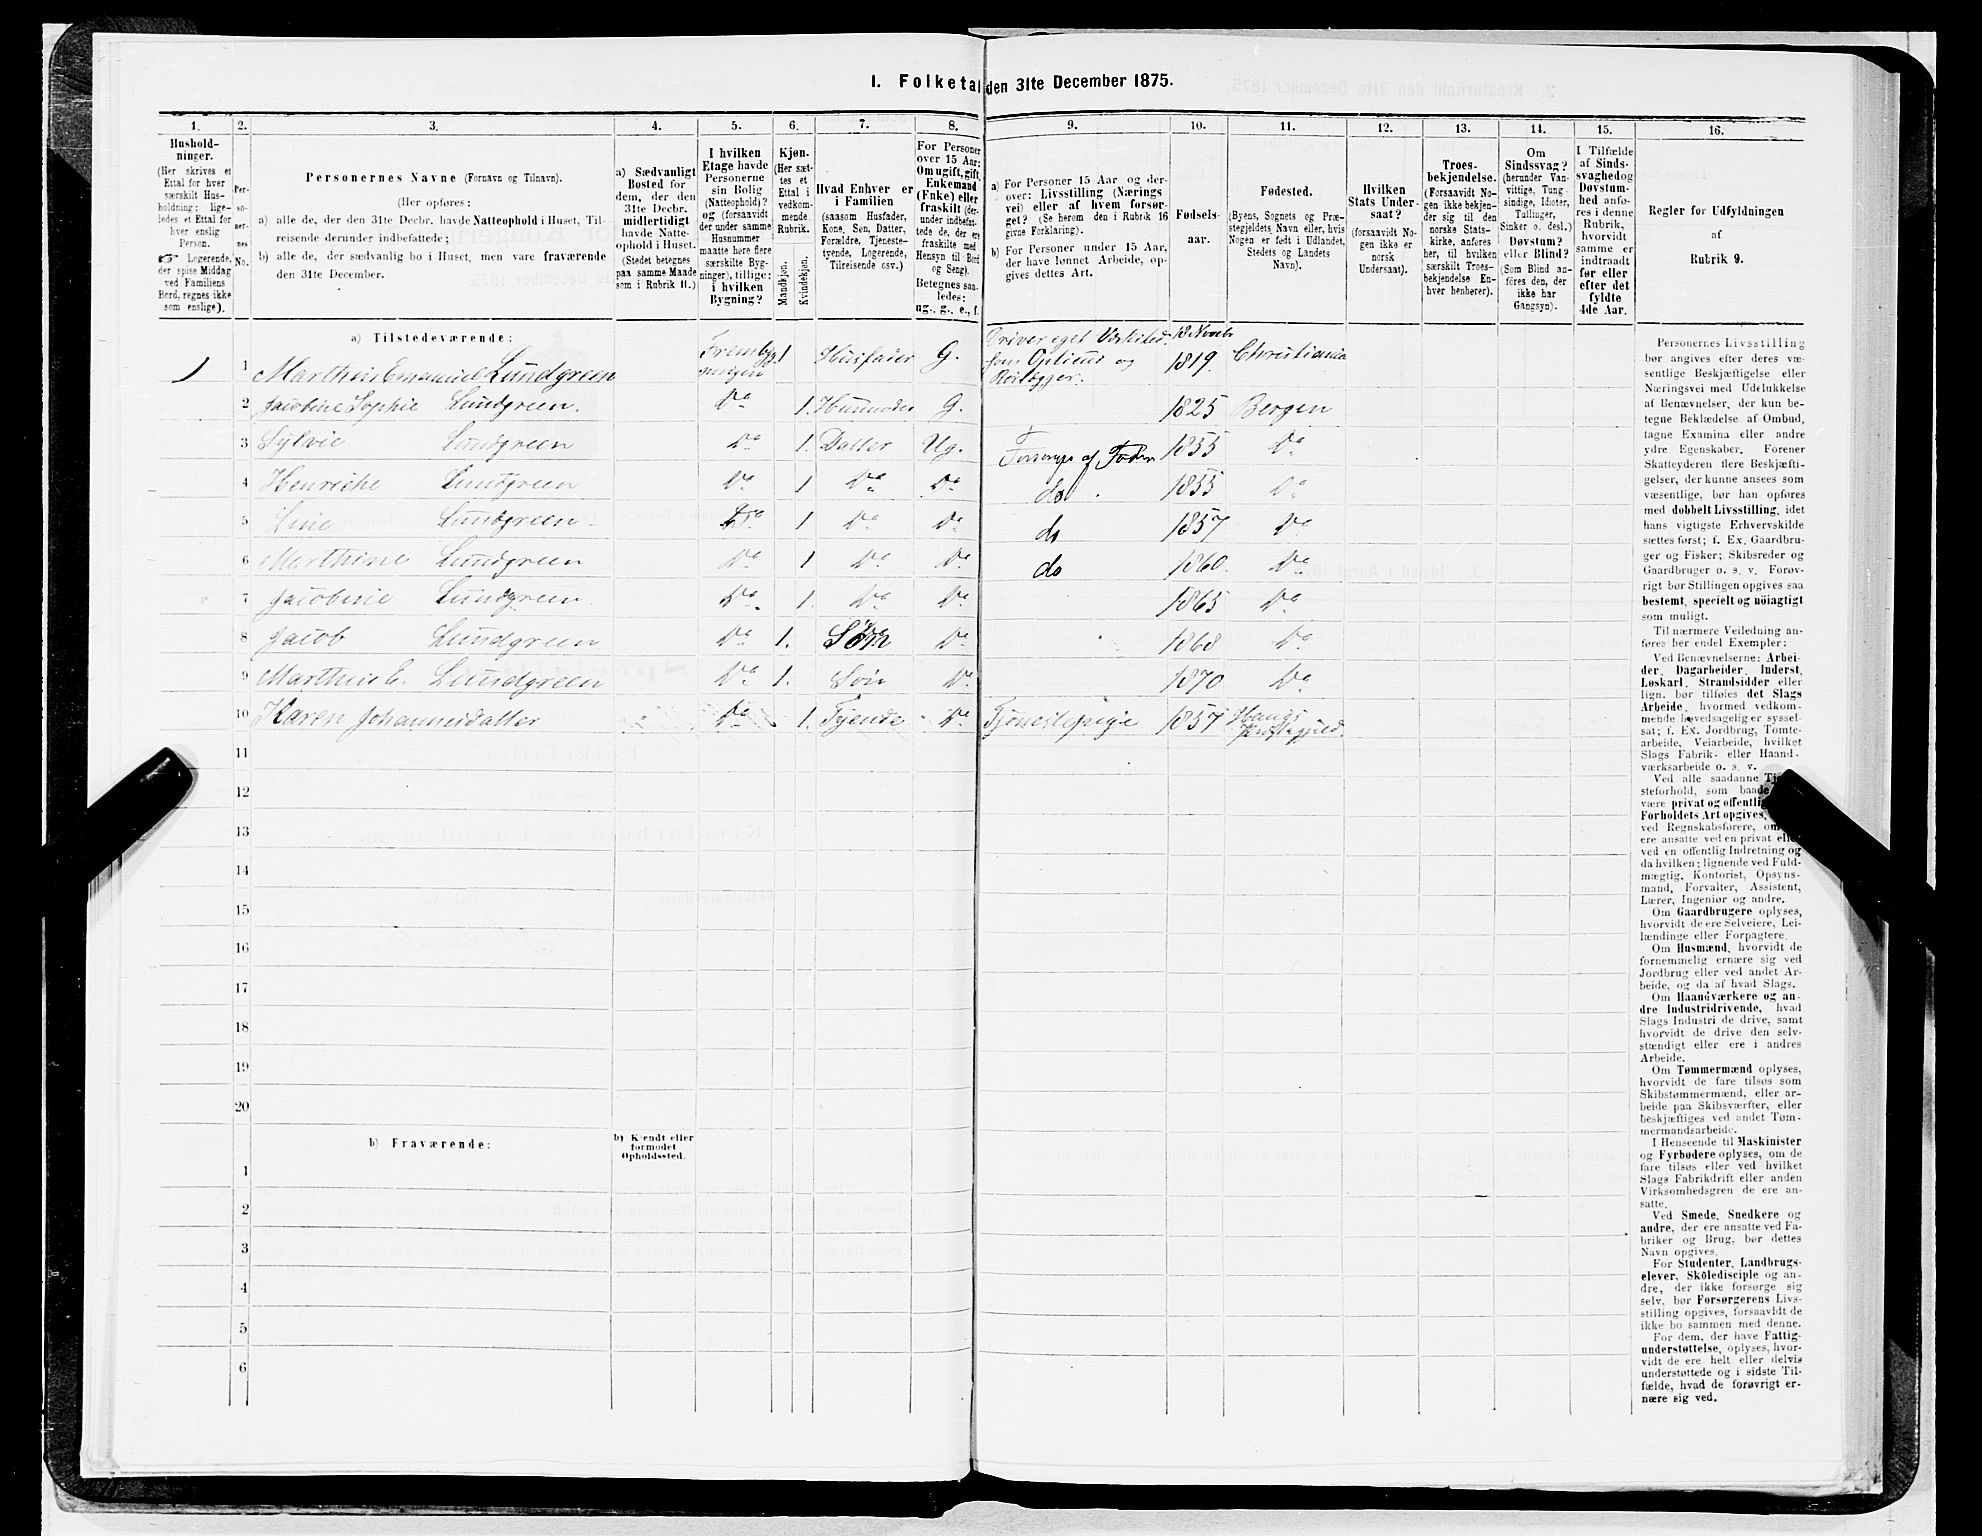 1. Folketal den 31te December 1875.
1. 2. 3. 4. 5. 6. 7. 8. 9. 10. 11. 12. 13. 14. 15. 16.
Hushold-
ninger.
(Her skrives et
Ettal for hver
særskilt Hus-
holdning; lige-
ledes et Ettal for
hver enslig
Person.
☞ Logerende,
der spise Middag
ved Familiens
Bord, regnes ikke
som enslige).
Per-
so-
ner-
nes
No.
Personernes Navne (Fornavn og Tilnavn).
(Her opføres:
a) alle de, der den 31te Decbr. havde Natteophold i Huset, Til-
reisende derunder indbefattede;
b) alle de, der sædvanlig bo i Huset, men vare fraværende
den 31te December.
a) Sædvanligt
Bosted for
dem, der den
31te Decbr.
midlertidigt
havde Natte-
ophold i Huset.
(Stedet betegnes
paa samme Maade
som i Rubrik 11.)
I hvilken
Etage havde
Personerne
sin Bolig
(Natteophold)?
og (forsaavidt
der under samme
Husnummer
maatte høre flere
særskilte Byg-
ninger), tillige:
i hvilken
Bygning?
Kjøn.
(Her sæt-
tes et
Ettal i
vedkom-
mende
Rubrik.
Mandkjøn.
Kvindekjøn.
Hvad Enhver er
i Familien
(saasom Husfader,
Kone, Søn, Datter,
Forældre, Tjeneste-
tyende, Logerende,
Tilreisende osv.)
For Personer
over 15 Aar:
Om ugift, gift,
Enkemand
(Enke) eller
fraskilt (der-
under indbefat-
tede de, der ere
fraskilte med
Hensyn til Bord
og Seng).
Betegnes saa-
ledes:
ug., g., e., f.
a) For Personer 15 Aar og der-
over: Livsstilling (Nærings
vei) eller af hvem forsør-
get? (Se herom den i Rubrik 16
givne Forklaring).
b) For Personer under 15 Aar,
der have lønnet Arbeide, op-
gives dettes Art.
Fødsels-
aar.
Fødested.
(Byens, Sognets og Præ-
stegjeldets Navn eller, hvis
Nogen er født i Udlandet,
Stedets og Landets
Navn).
Hvilken
Stats Under-
saat?
(forsaavidt No-
gen ikke er
norsk
Undersaat).
Troes-
bekjendelse.
(Forsaavidt No-
gen ikke bekjen-
der sig til den
norske Stats-
kirke, anføres
her, til hvilken
særskilt Troes-
bekjendelse En-
hver henhører).
Om
Sindssvag?
(herunder Van-
vittige, Tung
sindige, Idioter,
Tullinger,
Sinker o. desl.)
Døvstum?
eller Blind?
(Som Blind an-
føres den, der
ikke har
Gangsyn).
I Tilfælde
af Sinds-
svaghed og
Døvstum-
hed anfø-
res i denne
Rubrik,
hvorvidt
samme er
indtraadt
før eller
efter det
fyldte
4de Aar.
Regler for Udfyldningen
af
Rubrik 9.
a) Tilstedeværende:
1 1 Marthin Emanuel Lundgreen Frembyg 1 Husfader G. Driver eget som Opticus og 18 1819. Christiania
2 Jacobine Sophie Lundgreen. Do 1. Husmoder G. 1825 Bergen
3 Sylvie Lundgreen Do 1. Datter Ug. Forsørges af Faderen 1855 Do
4 Henriche Lundgreen Do 1 Do Do do 1855 Do
5 Lundgreen Do 1 Do Do do 1857 Do
6 Marthine Lundgreen Do 1 Do Do do 1860. Do
7 Jacobine Lundgreen Do 1. Do Do 1865 Do
8 Jacob Lundgreen Do 1. Søn Do 1868 Do
9 Marthin E. Lundgreen Do 1. Søn Do 1870 Do
10 Karen Johannesdatter Do 1. Tyende Do Tjenestepige 1857 Præstegjeld.
11
12
13
14
15
16
17
18
19
20
b) Fraværende:
b) Kjendt eller
formodet
Opholdssted.
1
2
3
4
5
6
Personernes Livsstilling
bør angives efter deres væ-
sentlige Beskjæftigelse eller
Næringsvei med Udelukkelse
af Benævnelser, der kun be-
tegne Beklædelse af Ombud,
tagne Examina eller andre
ydre Egenskaber. Forener
Skatteyderen flere Beskjæfti-
gelser, der kunne ansees som
væsentlige, bør han opføres
med dobbelt Livsstilling, idet
hans vigtigste Erhvervskilde
sættes først; f. Ex. Gaardbru-
ger og Fisker; Skibsreder og
Gaardbruger o. s. v. Forøv-
rigt bør Stillingen opgives saa
bestemt, specielt og nöiagtigt
som muligt.
Til nærmere Veiledning an-
føres her endel Exempler:
Ved Benævnelserne: Arbei-
der, Dagarbeider, Inderst,
Løskarl, Strandsidder eller
lign. bør tilføies det Slags
Arbeide, hvormed vedkom-
mende hovedsagelig er syssel-
sat; f. Ex. Jordbrug, Tomte-
arbeide, Veiarbeide, hvilket
Slags Fabrik- eller Haand-
værksarbeide o. s. v.
Ved alle saadanne
steforhold, som
være privat og
Forholdets Art opgives,
ved Regnskabsførere,
ere ansatte ved en privat
ved en offentlig Indretning og
da hvilken; lignende ved Fuld-
mægtig, Kontorist, Opsyns-
mand, Forvalter, Assistent,
Lærer, Ingeniør og andre.
Om Gaardbrugere oplyses,
hvorvidt de ere Selveiere, Lei-
lændinge eller Forpagtere.
Om Husmænd, hvorvidt de
fornemmelig ernære sig ved
Jordbrug eller ved andet Ar-
beide, og da af hvad Slags.
Om Haandværkere og an-
dre Industridrivende, hvad
Slags Industri de drive, samt
hvorvidt de drive den selv-
stændigt eller ere i andres
Arbeide.
Om Tømmermænd oplyses,
hvorvidt de fare tilsøs som
Skibstømmermænd, eller ar-
beide paa Skibsværfter, eller
beskjæftiges ved andet Tøm-
mermandsarbeide.
I Henseende til Maskinister
og Fyrbødere oplyses, om de
fare tilsøs eller ved hvilket
Slags Fabrikdrift eller anden
Virksomhedsgren de ere an-
satte.
Ved Smede, Snedkere og
andre, der ere ansatte ved Fa-
briker og Brug, bør dettes
Navn opgives.
For Studenter, Landbrugs-
elever, Skoledisciple og an-
dre, der ikke forsørge sig
selv, bør Forsørgerens Livs-
stilling opgives, forsaavidt de
ikke bo sammen med denne.
For dem, der have Fattig-
understøttelse, oplyses, hvor-
vidt de ere helt eller delvis
understøttede og i sidste Til-
fælde, hvad de forøvrigt er-
nære sig ved.